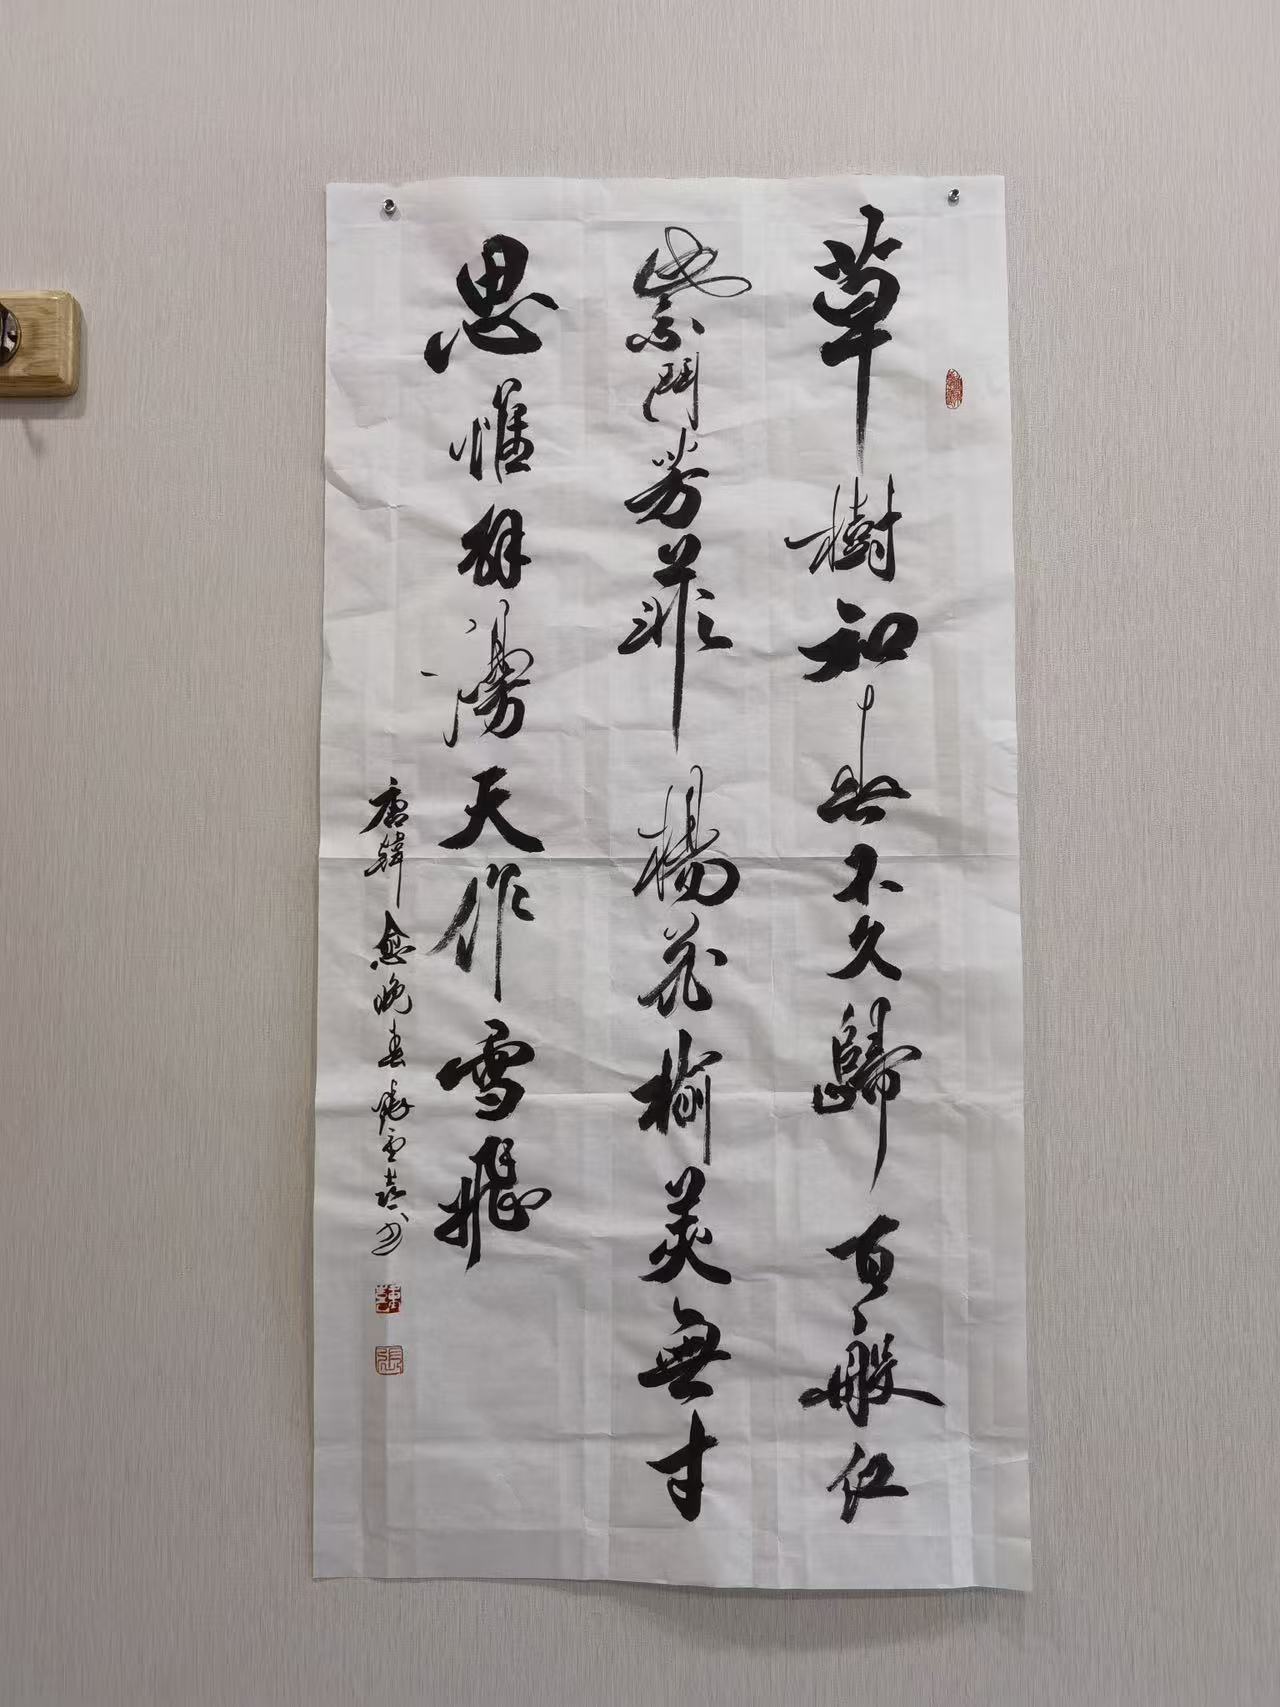 草樹知春不久歸百般红
紫鬥芳菲楊花榆荚無才
思惟解漫天作雪飛
唐韓愈晚春
張